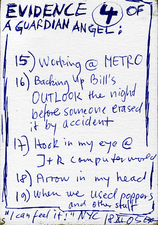 EVIDENCE 4 OF
A GUARDIAN ANGEL:
15) Working @ METRO
16) Backing up Bill's
OUTLOOK the night
before someone erased
it by accident
17) Hook in my eye @
J+R computer world
18) Arrow in my head
19) When we used poppers
and other stuff
"I can feel it!" NYC